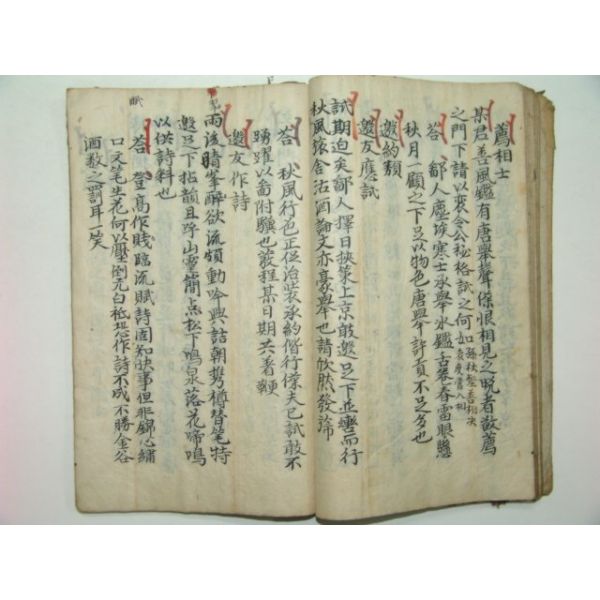 薦相士
某君善風鑑有唐舉聲僕恨相見之晚者敢薦
之門下請以裴令公秘格試之何如
答 鄙人塵埃寒士承舉氷鑑舌卷春雷眼懸
秋月一顧之下足以物色唐舉許負不足多也
邀約類
邀友應試
試期迫矣鄙人擇日挾策上京敢邀足下並轡而行
秋風旅舍沽酒論文亦豪舉也請欣然發
答 秋風行色正位治裝承約偕行僕夫已試敢不
踴躍以畓附驥也發程某日期共着鞭
邀友作詩
雨後晴峯醉欲流頻動吟興詰朝携樽替笔特
邀足下拈韻且呼山靈簡点松下鳴泉落花啼鳴
以供詩料也
答 登高作賤臨流賦詩固知快事但非錦心繡
口文笔生花何以壓倒元白祗恐作詩不成不勝金谷
酒数之罰耳一笑